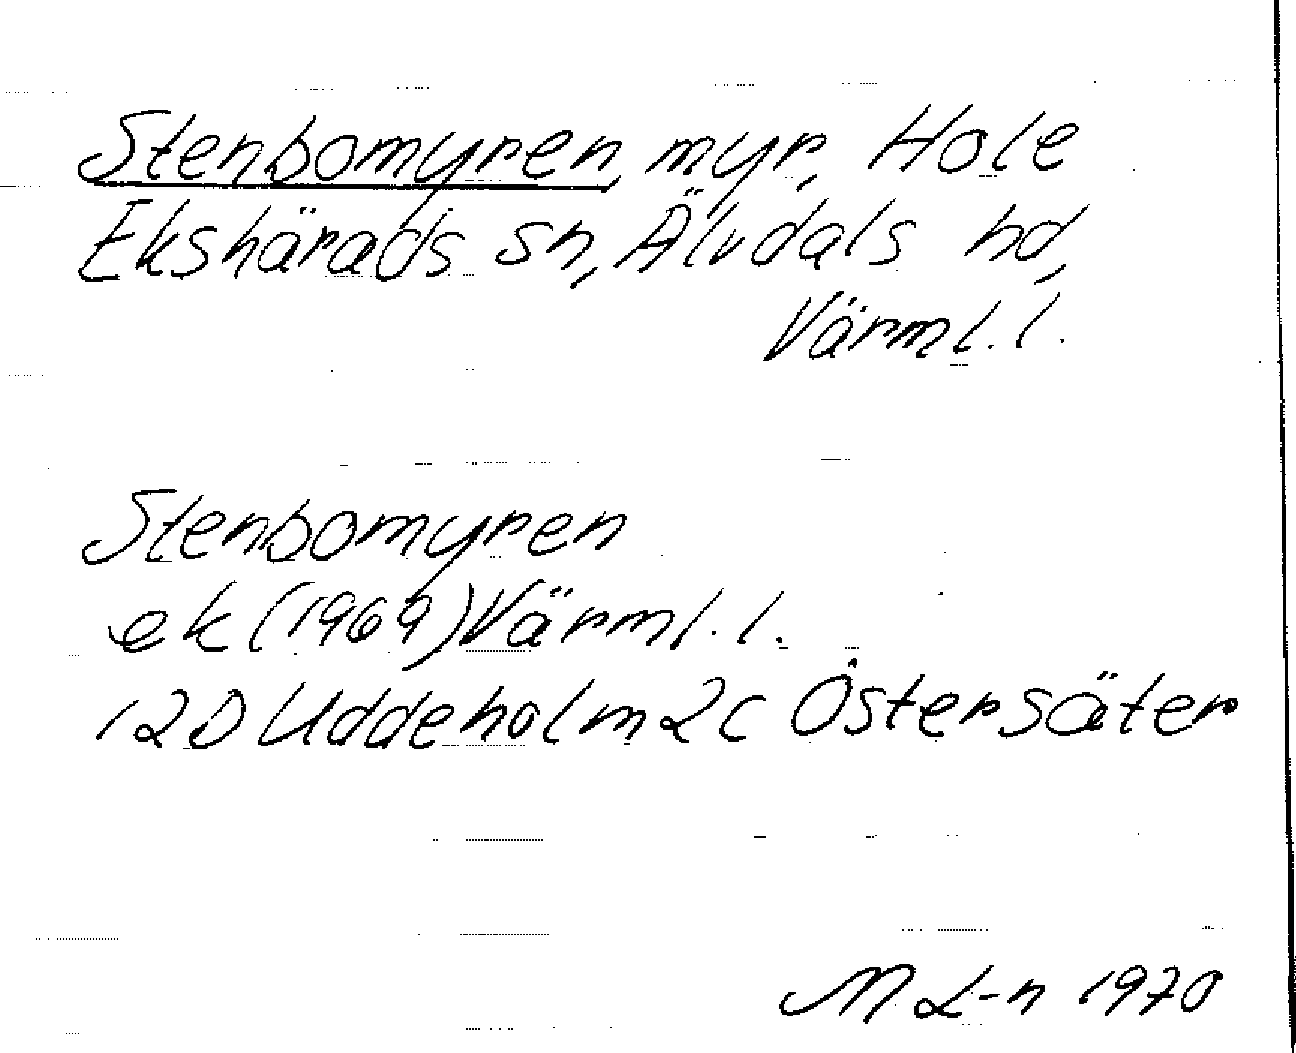 Stenbomyren, myr, Hole
Ekshärads sn, Älvdals hd,
Värml. l.
Stenbomyren
ek (1969) Värml. l.
12D Uddeholm 2c Östersäter
M L-n 1970